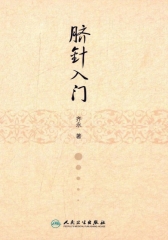 脐针入门
齐永 著
人民卫生出版社